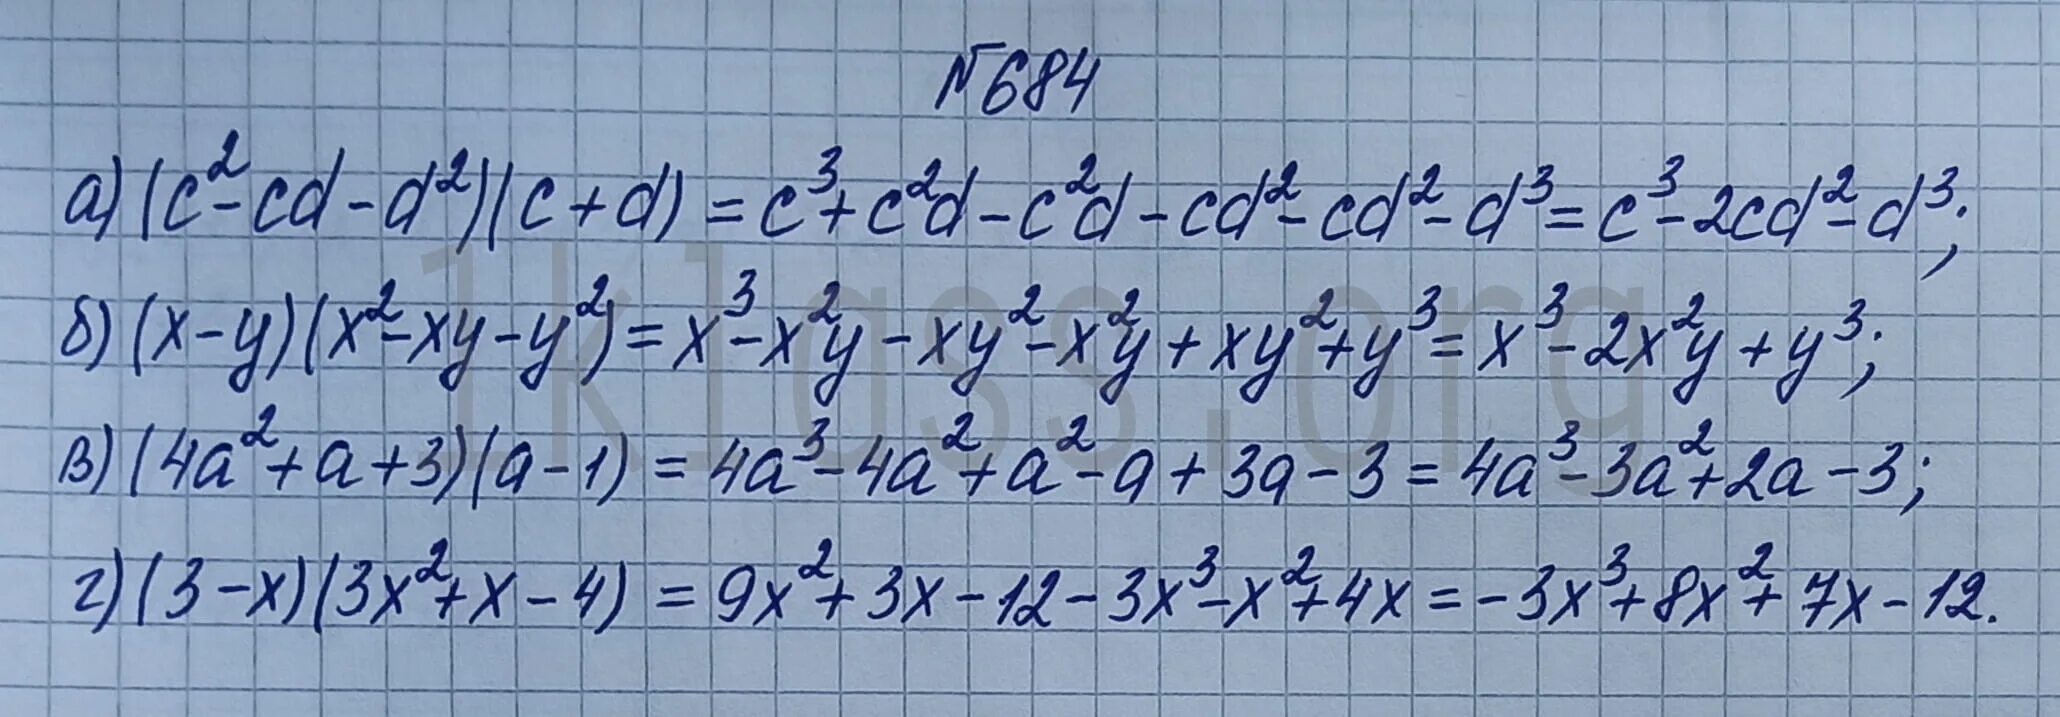 №684
а) (c²-cd-d²)(c+d) = c³+c²d-c²d-cd²-cd²-d³= c³-2cd²-d³;
б) (x-y)(x²-xy-y²)= x³-x²y-xy²-x²y+xy²+y³= x³-2x²y+y³;
в) (4a²+a+3)(a-1) = 4a³-4a²+a²-a+3a-3 = 4a³-3a²+2a-3;
г) (3-x)(3x²+x-4) = 9x²+3x-12-3x³-x²+4x=-3x³+8x²+7x-12.
1klass.org